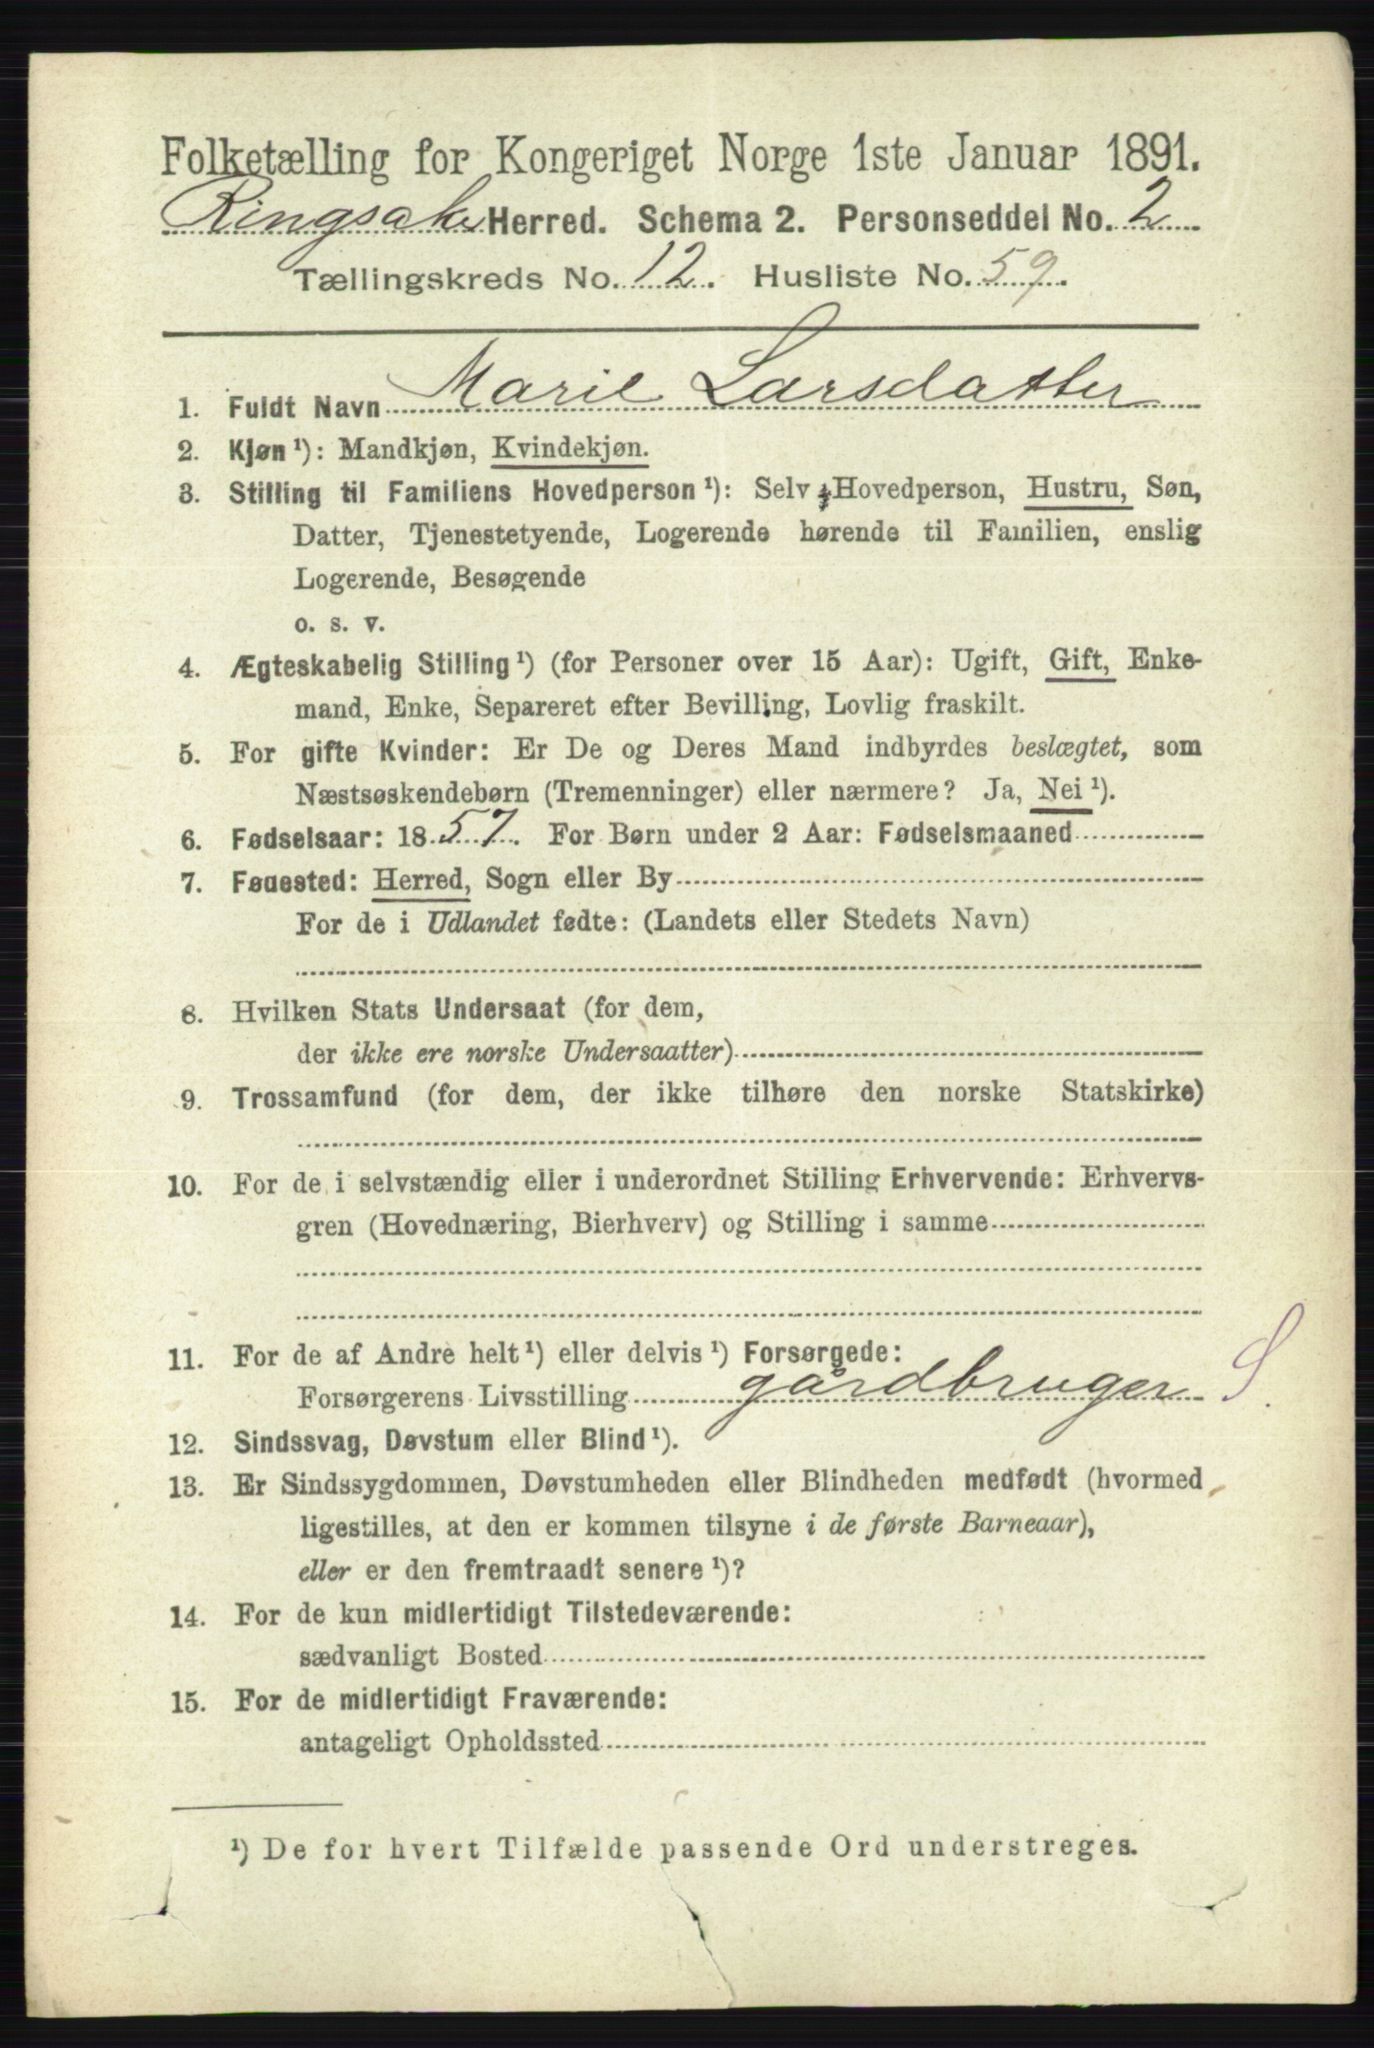 Folketælling for Kongeriget Norge 1ste Januar 1891.
Ringsaker Herred. Schema 2. Personseddel No. 2
Tællingskreds No. 12. Husliste No. 59.
1. Fuldt Navn Marie Larsdatter
2. Kjøn ¹): Mandkjøn, Kvindekjøn.
3. Stilling til Familiens Hovedperson ¹): Selv Hovedperson, Hustru, Søn,
Datter, Tjenestetyende, Logerende hørende til Familien, enslig
Logerende, Besøgende
o. s. v.
4. Ægteskabelig Stilling ¹) (for Personer over 15 Aar): Ugift, Gift, Enke-
mand, Enke, Separeret efter Bevilling, Lovlig fraskilt.
5. For gifte Kvinder: Er De og Deres Mand indbyrdes beslægtet, som
Næstsøskendebørn (Tremenninger) eller nærmere? Ja, Nei ¹).
6. Fødselsaar: 1857. For Børn under 2 Aar: Fødselsmaaned
7. Føuested: Herred, Sogn eller By
For de i Udlandet fødte: (Landets eller Stedets Navn)
8. Hvilken Stats Undersaat (for dem,
der ikke ere norske Undersaatter)
9. Trossamfund (for dem, der ikke tilhøre den norske Statskirke)
10. For de i selvstændig eller i underordnet Stilling Erhvervende: Erhvervs-
gren (Hovednæring, Bierhverv) og Stilling i samme
11. For de af Andre helt ¹) eller delvis ¹) Forsørgede:
Forsørgerens Livsstilling gårdbruger S.
12. Sindssvag, Døvstum eller Blind ¹).
13. Er Sindssygdommen, Døvstumheden eller Blindheden medfødt (hvormed
ligestilles, at den er kommen tilsyne i de første Barneaar),
eller er den fremtraadt senere ¹)?
14. For de kun midlertidigt Tilstedeværende:
sædvanligt Bosted
15. For de midlertidigt Fraværende:
antageligt Opholdssted
¹) De for hvert Tilfælde passende Ord understreges.